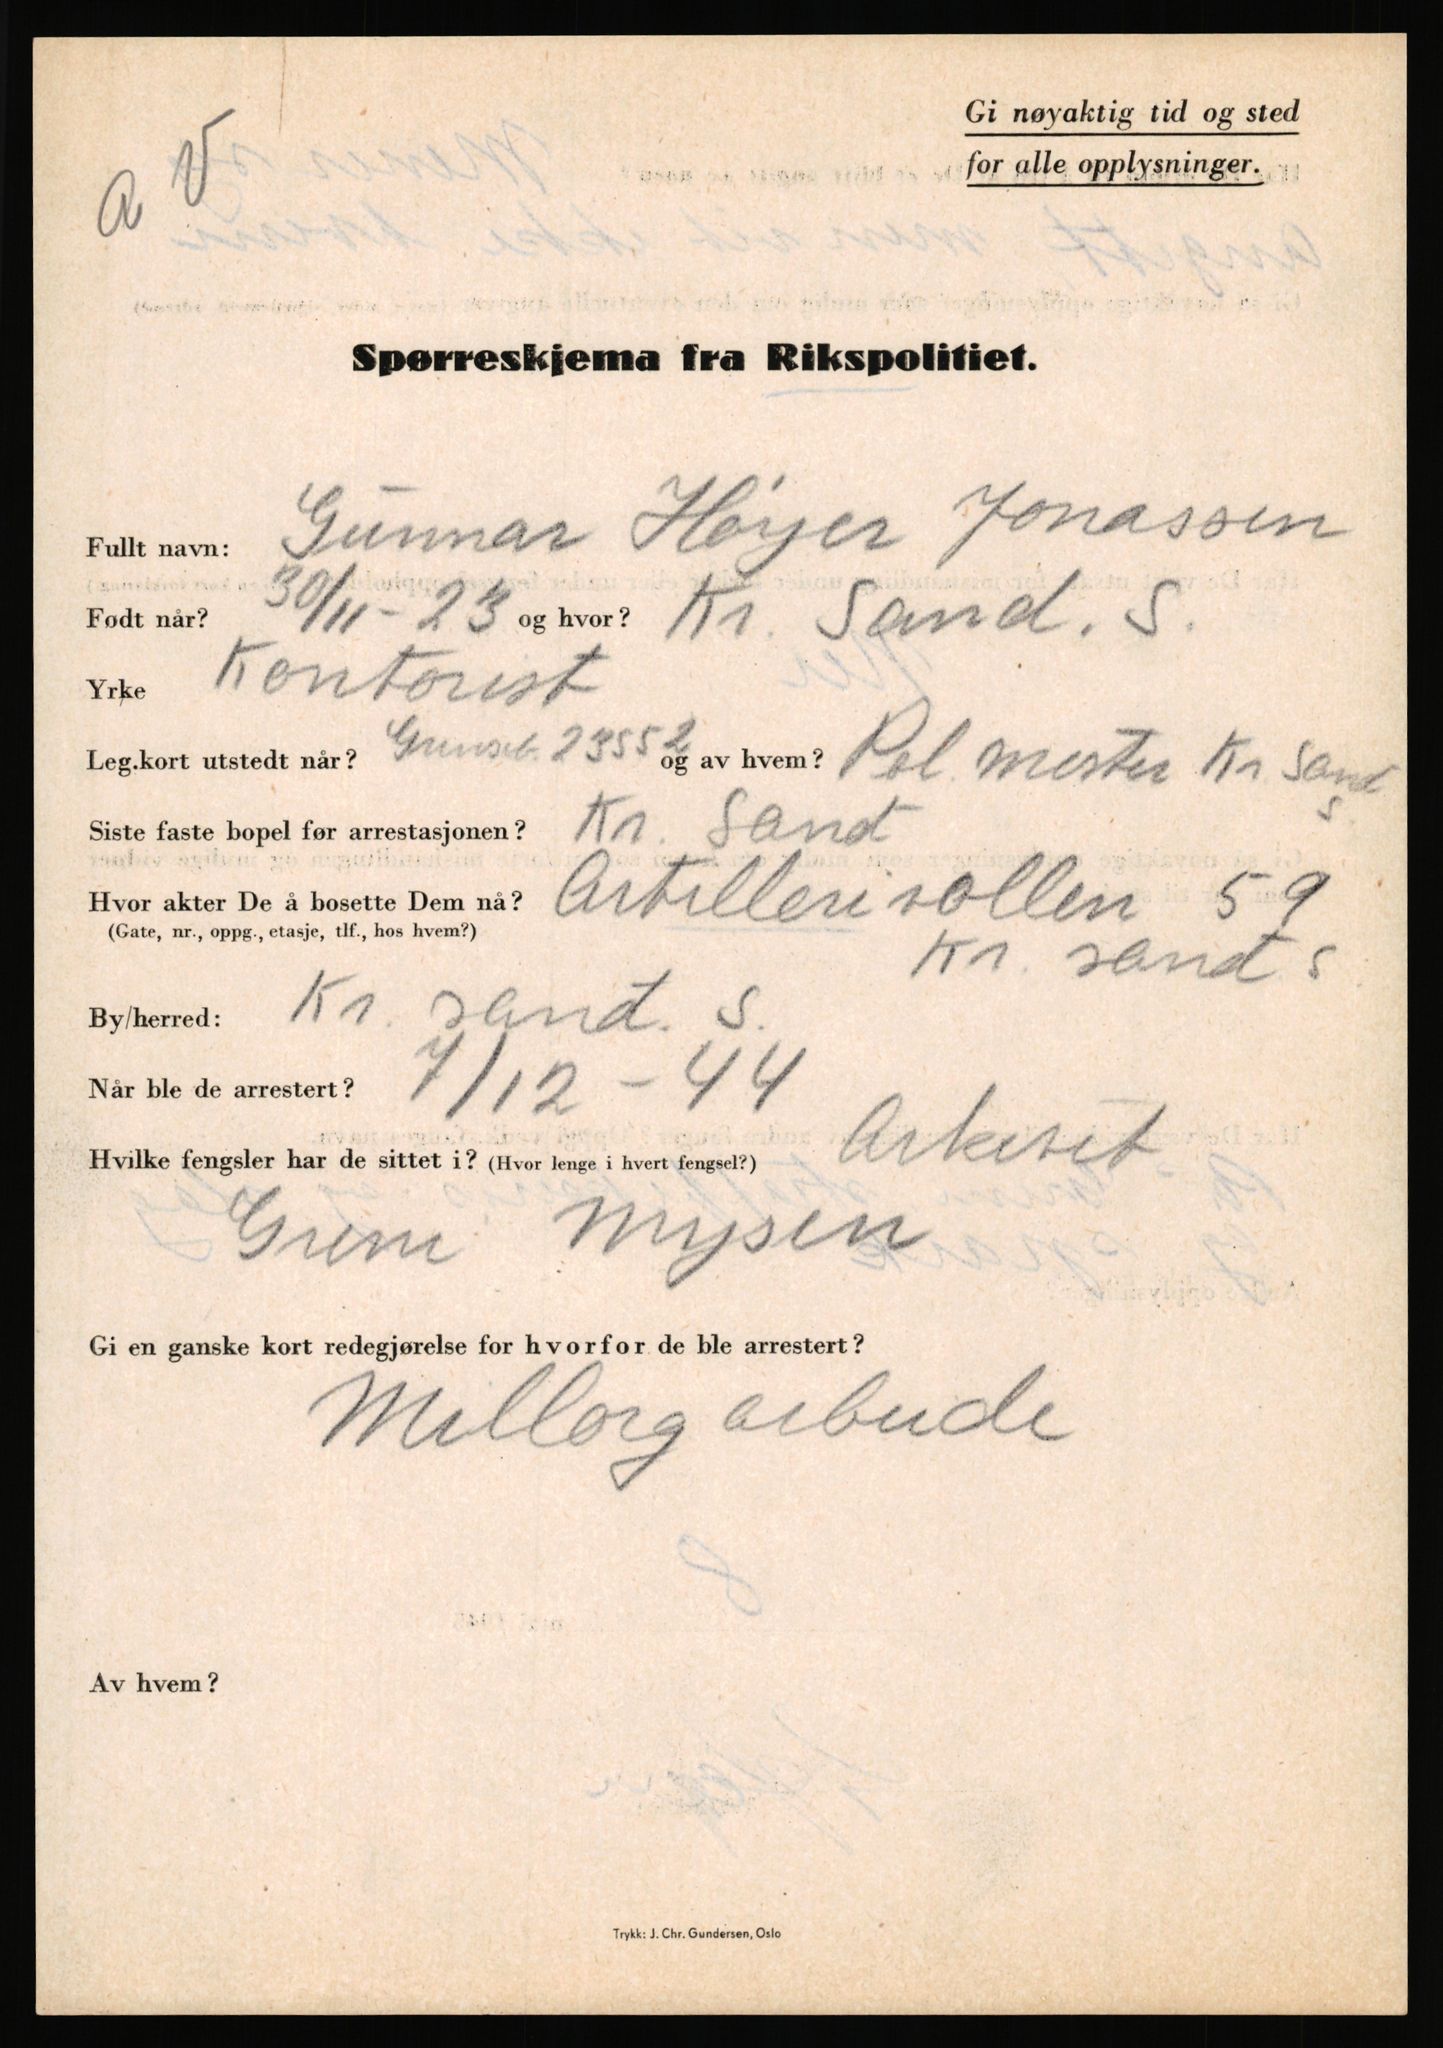 a V
Gi nøyaktig tid og sted
for alle opplysninger.
Spørreskjema fra Rikspolitiet.
Fullt navn: Gunnar Höyer Jonassen
Født når? 30/11-23 og hvor? Kr. Sand. S.
Yrke Kontorist
Leg.kort utstedt når? Grenseb. 23552 og av hvem? Pol. mester Kr. Sand
S.
Siste faste bopel før arrestasjonen? Kr. Sand
Hvor akter De å bosette Dem nå? Artillerivollen 59
(Gate, nr., oppg., etasje, tlf., hos hvem?) Kr. sand s
By/herred: Kr. sand. S.
Når ble de arrestert? 7/12-44
Hvilke fengsler har de sittet i? (Hvor lenge i hvert fengsel?) Arkivet
Grini Mysen
Gi en ganske kort redegjørelse for hvorfor de ble arrestert?
Millorg arbeide
Av hvem?
Trykk: J. Chr. Gundersen, Oslo